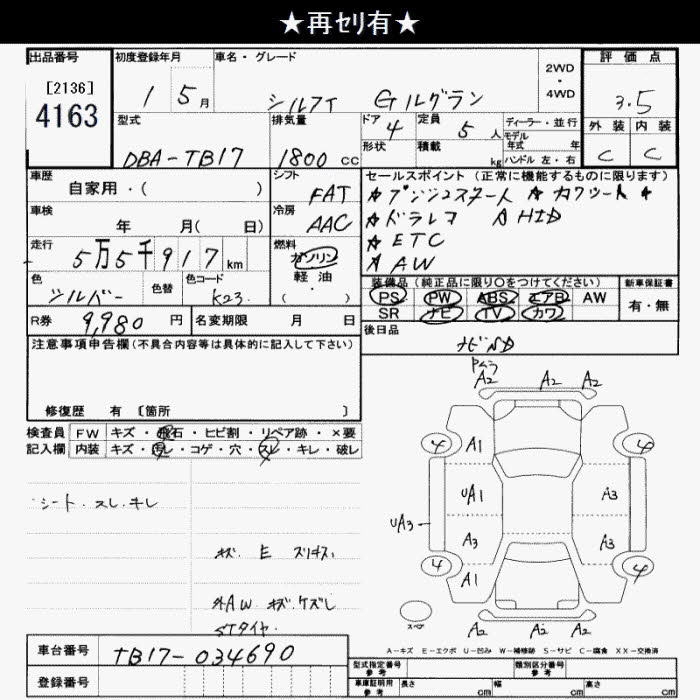 ★再ｾﾘ有★
出品番号 初度登録年月 車名・グレード 2WD・4WD 評価点
[2136]
4163
1 5月 シルフィ Gルグラン 3.5
型式 排気量 ドア 4 定員 5人 ディーラー・並行 外装 内装
形状 積載 kg モデル年式 年 ハンドル 左・右
DBA-TB17 1800 CC C C
車歴 自家用・( ) シフト FAT セールスポイント (正常に機能するものに限ります)
★プッシュスタート ★カワシート ★
車検 年 月( 日) 冷房 AAC ★ドラレコ ★HID
★ETC
走行 5万5千917km 燃料 ガソリン 軽・油 ( ・ ) ★AW
色 シルバー 色替 色コード K23 装備品 (純正品に限り○をつけてください) 新車保証書
PS PW ABS エアB AW 有・無
SR ナビ TV カワ
R券 9,980円 名変期限 月 日 後日品
ナビSD
注意事項申告欄 (不具合内容等は具体的に記入して下さい)
修復歴 有 〔箇所 〕
検査員記入欄 FW キズ・飛石・ヒビ割・リペア跡・×要
内装 キズ・汚レ・コゲ・穴・スレ・キレ・破レ
シート.スレ.キレ
キズ. E スリキズ.
外AW キズ.ケズレ
STタイヤ.
A2 A2 A2
4 A1 4
UA1 A3
UA3
A3 A3
4 A1 4
スペア A2 A2 A2
A-キズ E-エクボ U-凹み W-補修跡 S-サビ C-腐食 XX-交換済
車台番号 TB17-034690
登録番号
型式指定番号 参考 類別区分番号 参考
車庫証明用 参考 長さ cm 幅 cm 高さ cm